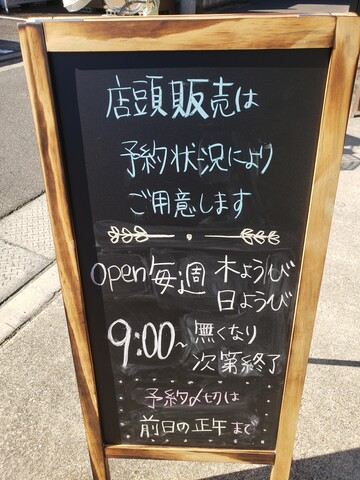 店頭販売は
予約状況により
ご用意します
open 毎週 木ようび
日ようび
9:00~ 無くなり
次第終了
予約〆切は
前日の正午まで